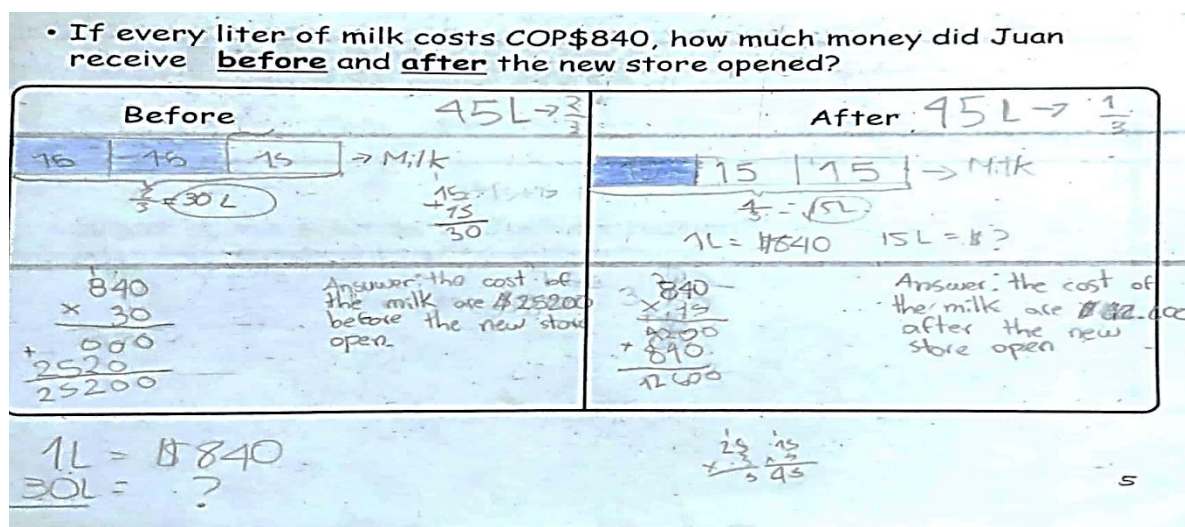 • If every liter of milk costs COP$840, how much money did Juan
receive before and after the new store opened?
Before
45L → 2/3
15 15 15 → Milk
= 30 L
15
+ 15
30
840
× 30
000
+ 2520
25200
Answer: the cost of
the milk are $25200
before the new store
open
After 45 L → 1/3
15 15 → Milk
1L = $840 15 L = $ ?
840
× 15
4200
+ 840
12600
Answer: the cost of
the milk are
after the new
store open
1L = $840
30L = ?
5